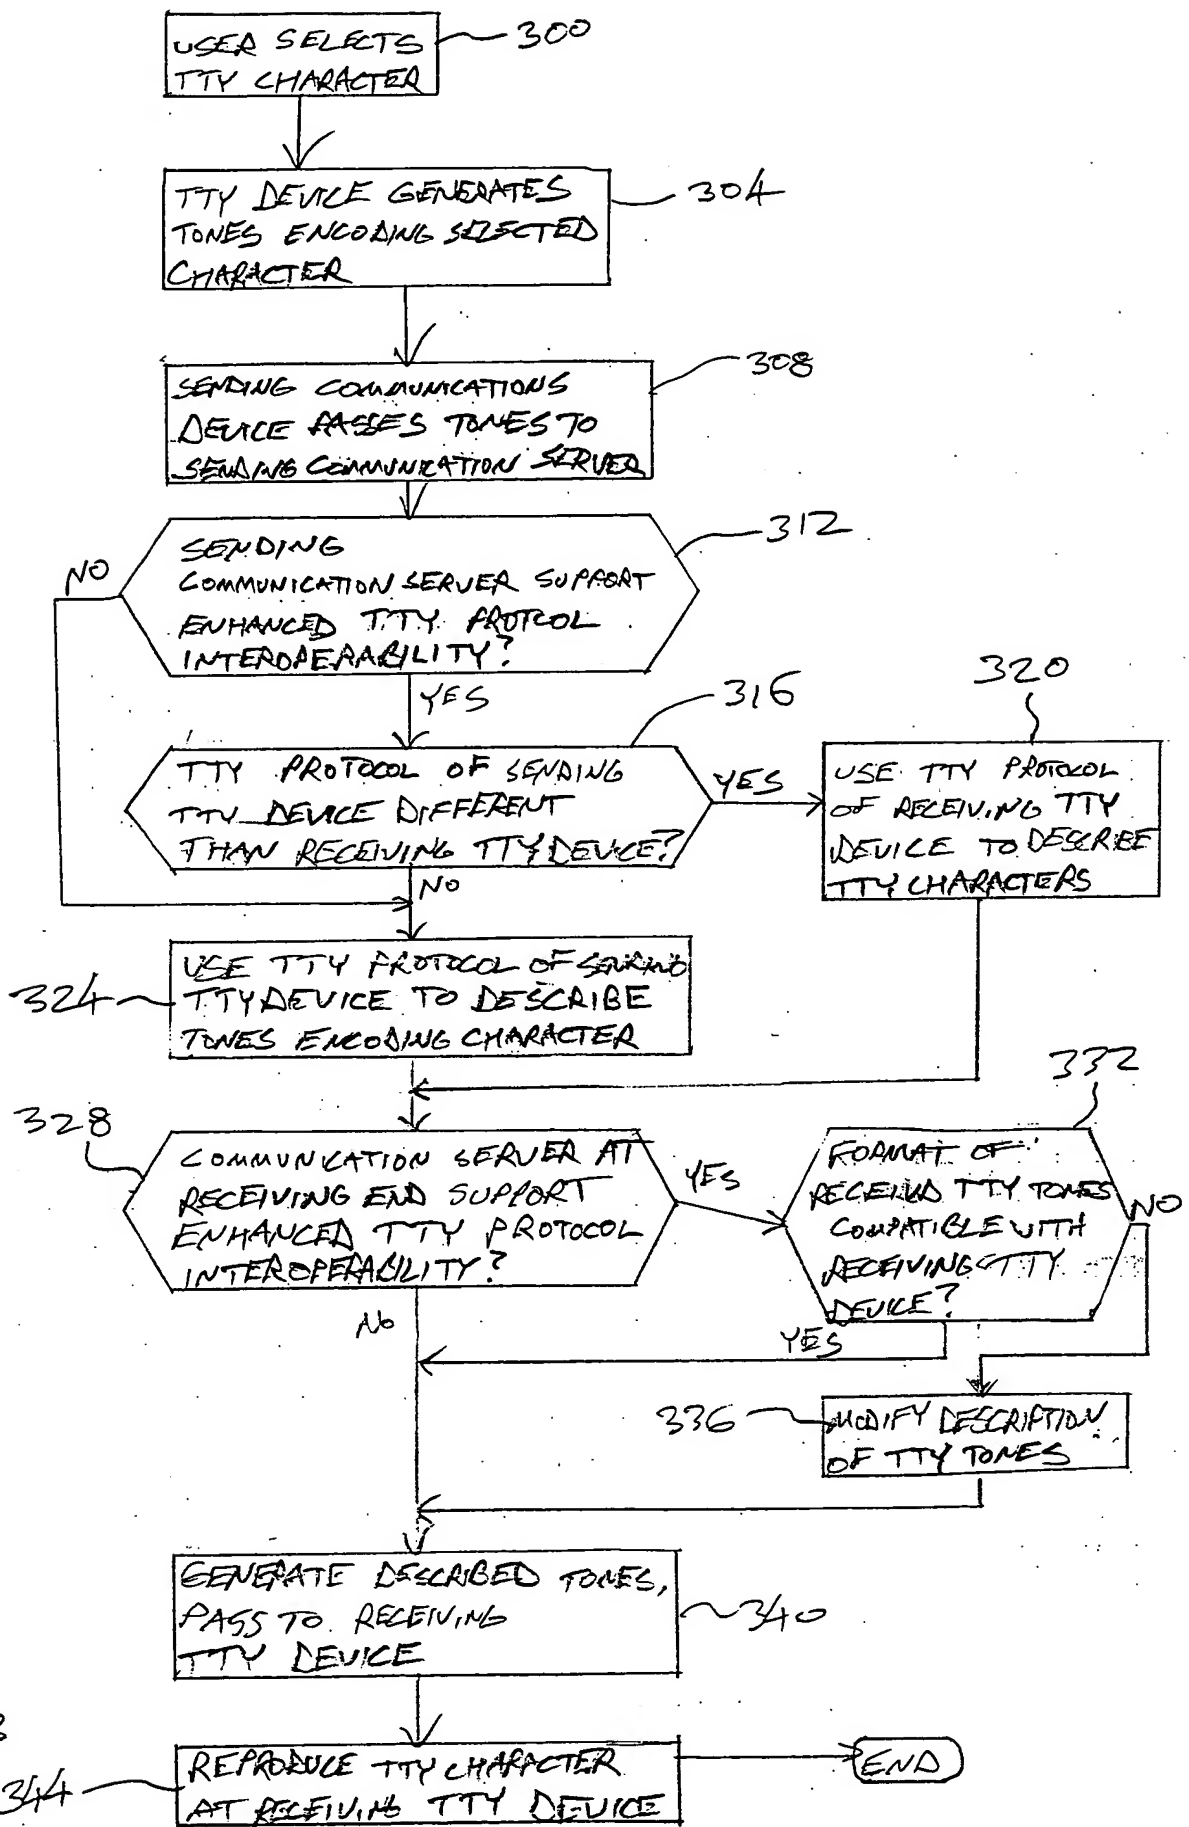 USER SELECTS
TTY CHARACTER
300
TTY DEVICE GENERATES
TONES ENCODING SELECTED
CHARACTER
304
SENDING COMMUNICATIONS
DEVICE PASSES TONES TO
SENDING COMMUNICATION SERVER
308
SENDING
COMMUNICATION SERVER SUPPORT
ENHANCED TTY PROTCOL
INTEROPERABILITY?
312
NO
YES
TTY PROTOCOL OF SENDING
TTY DEVICE DIFFERENT
THAN RECEIVING TTY DEVICE?
316
YES
NO
320
USE TTY PROTOCOL
OF RECEIVING TTY
DEVICE TO DESCRIBE
TTY CHARACTERS
324
USE TTY PROTOCOL OF SENDING
TTY DEVICE TO DESCRIBE
TONES ENCODING CHARACTER
328
COMMUNICATION SERVER AT
RECEIVING END SUPPORT
ENHANCED TTY PROTOCOL
INTEROPERABILITY?
YES
NO
332
FORMAT OF
RECEIVED TTY TONES
COMPATIBLE WITH
RECEIVING TTY
DEVICE?
NO
YES
336
MODIFY DESCRIPTION
OF TTY TONES
GENERATE DESCRIBED TONES,
PASS TO RECEIVING
TTY DEVICE
340
3
344
REPRODUCE TTY CHARACTER
AT RECEIVING TTY DEVICE
END